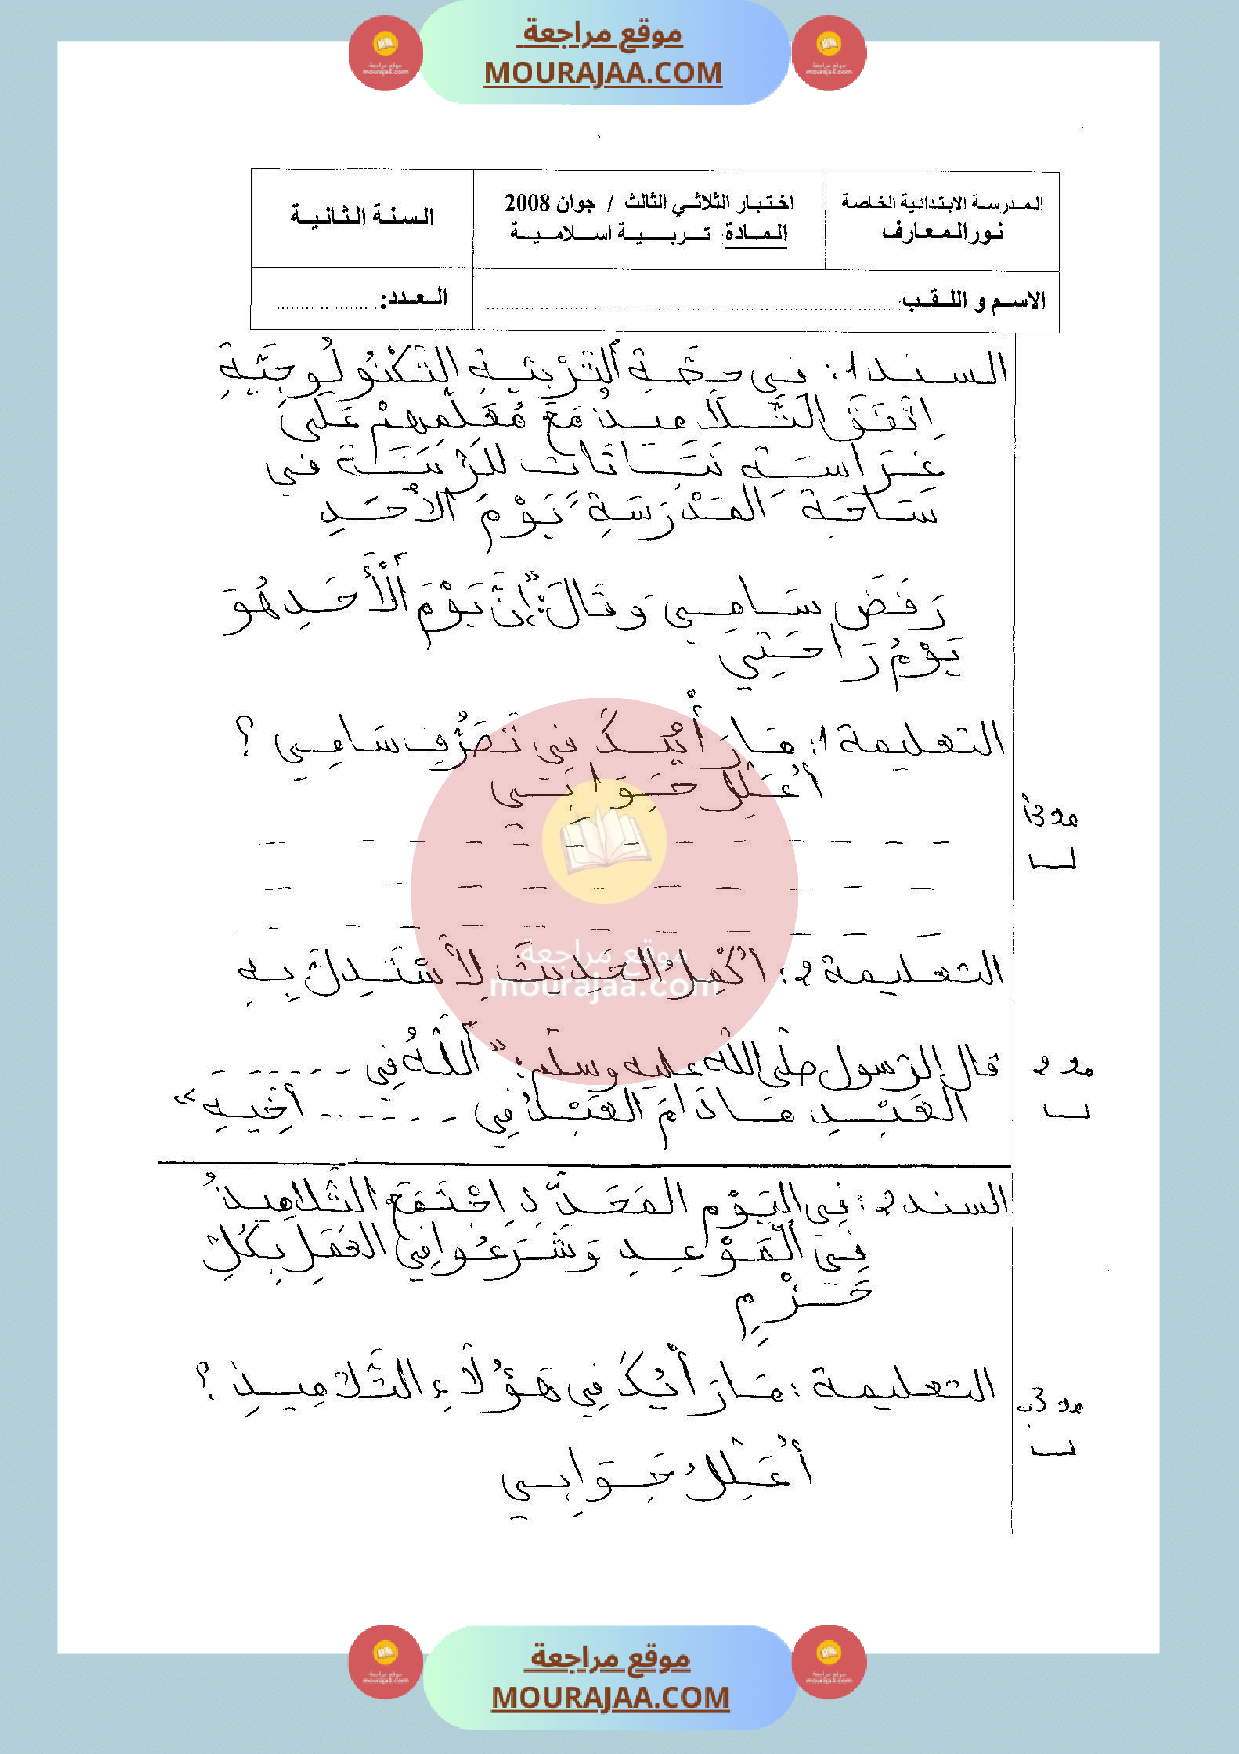 موقع مراجعة
MOURAJAA.COM
المدرسة الابتدائية الخاصة
نور المعارف
اختبار الثلاثي الثالث / جوان 2008
المادة: تربية اسلامية
السنة الثانية
الاسم و اللقب
العدد:
السند 1: في حِصَّةِ التَّرْبِيَةِ التِّكْنُولُوجِيَّةِ
اِتَّفَقَ التَّلَامِيذُ مَعَ مُعَلِّمِهِمْ عَلَى
غِرَاسَةِ نَبَاتَاتٍ لِلزِّينَةِ في
سَاحَةِ المَدْرَسَةِ يَوْمَ الأَحَدِ
رَفَضَ سَامِي وَقَالَ: "إِنَّ يَوْمَ الأَحَدِ هُوَ
يَوْمُ رَاحَتِي
التعليمة 1: مَا رَأْيُكَ في تَصَرُّفِ سَامِي ؟
أُعَلِّلُ جَوَابِي
مع 3أ
التعليمة 2: أُكْمِلُ الحَدِيثَ لِأَسْتَدِلَّ بِهِ
قال الرسول صلى الله عليه وسلم: "اَللَّهُ فِي - - - - - -
العَبْدِ مَا دَامَ العَبْدُ فِي - - - - ... أَخِيهِ"
مع 2
السند 2: فِي اليَوْمِ المُحَدَّدِ اِجْتَمَعَ التَّلَامِيذُ
فِي المَوْعِدِ وَشَرَعُوا فِي العَمَلِ بِكُلِّ
حَزْمٍ
التعليمة: مَا رَأْيُكَ فِي هَؤُلَاءِ التَّلَامِيذِ ؟
مع 3ب
أُعَلِّلُ جَوَابِي
موقع مراجعة
mourajaa.com
موقع مراجعة
MOURAJAA.COM